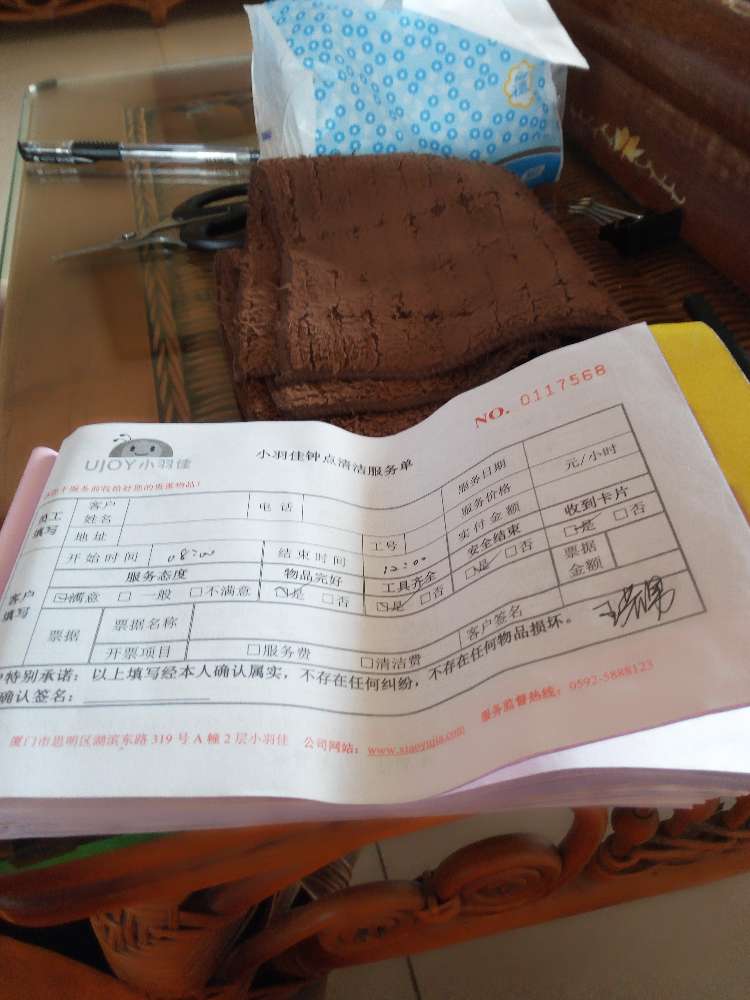 NO. 0117568
UJOY小羽佳
小羽佳钟点清洁服务单
客户姓名 电话 服务日期
员工填写 服务价格 元/小时
地址 工号 实付金额 收到卡片
开始时间 08:00 结束时间 12:00 安全结束 □是 □否
服务态度 物品完好 工具齐全 □是 □否 票据金额
客户填写 □满意 □一般 □不满意 □是 □否 □是 □否
票据 票据名称 客户签名
开票项目 □服务费 □清洁费
特别承诺：以上填写经本人确认属实，不存在任何纠纷，不存在任何物品损坏。
确认签名：
厦门市思明区湖滨东路 319 号 A 幢 2 层小羽佳 公司网站：www.xiaoyujia.com 服务监督热线：0592-5888123